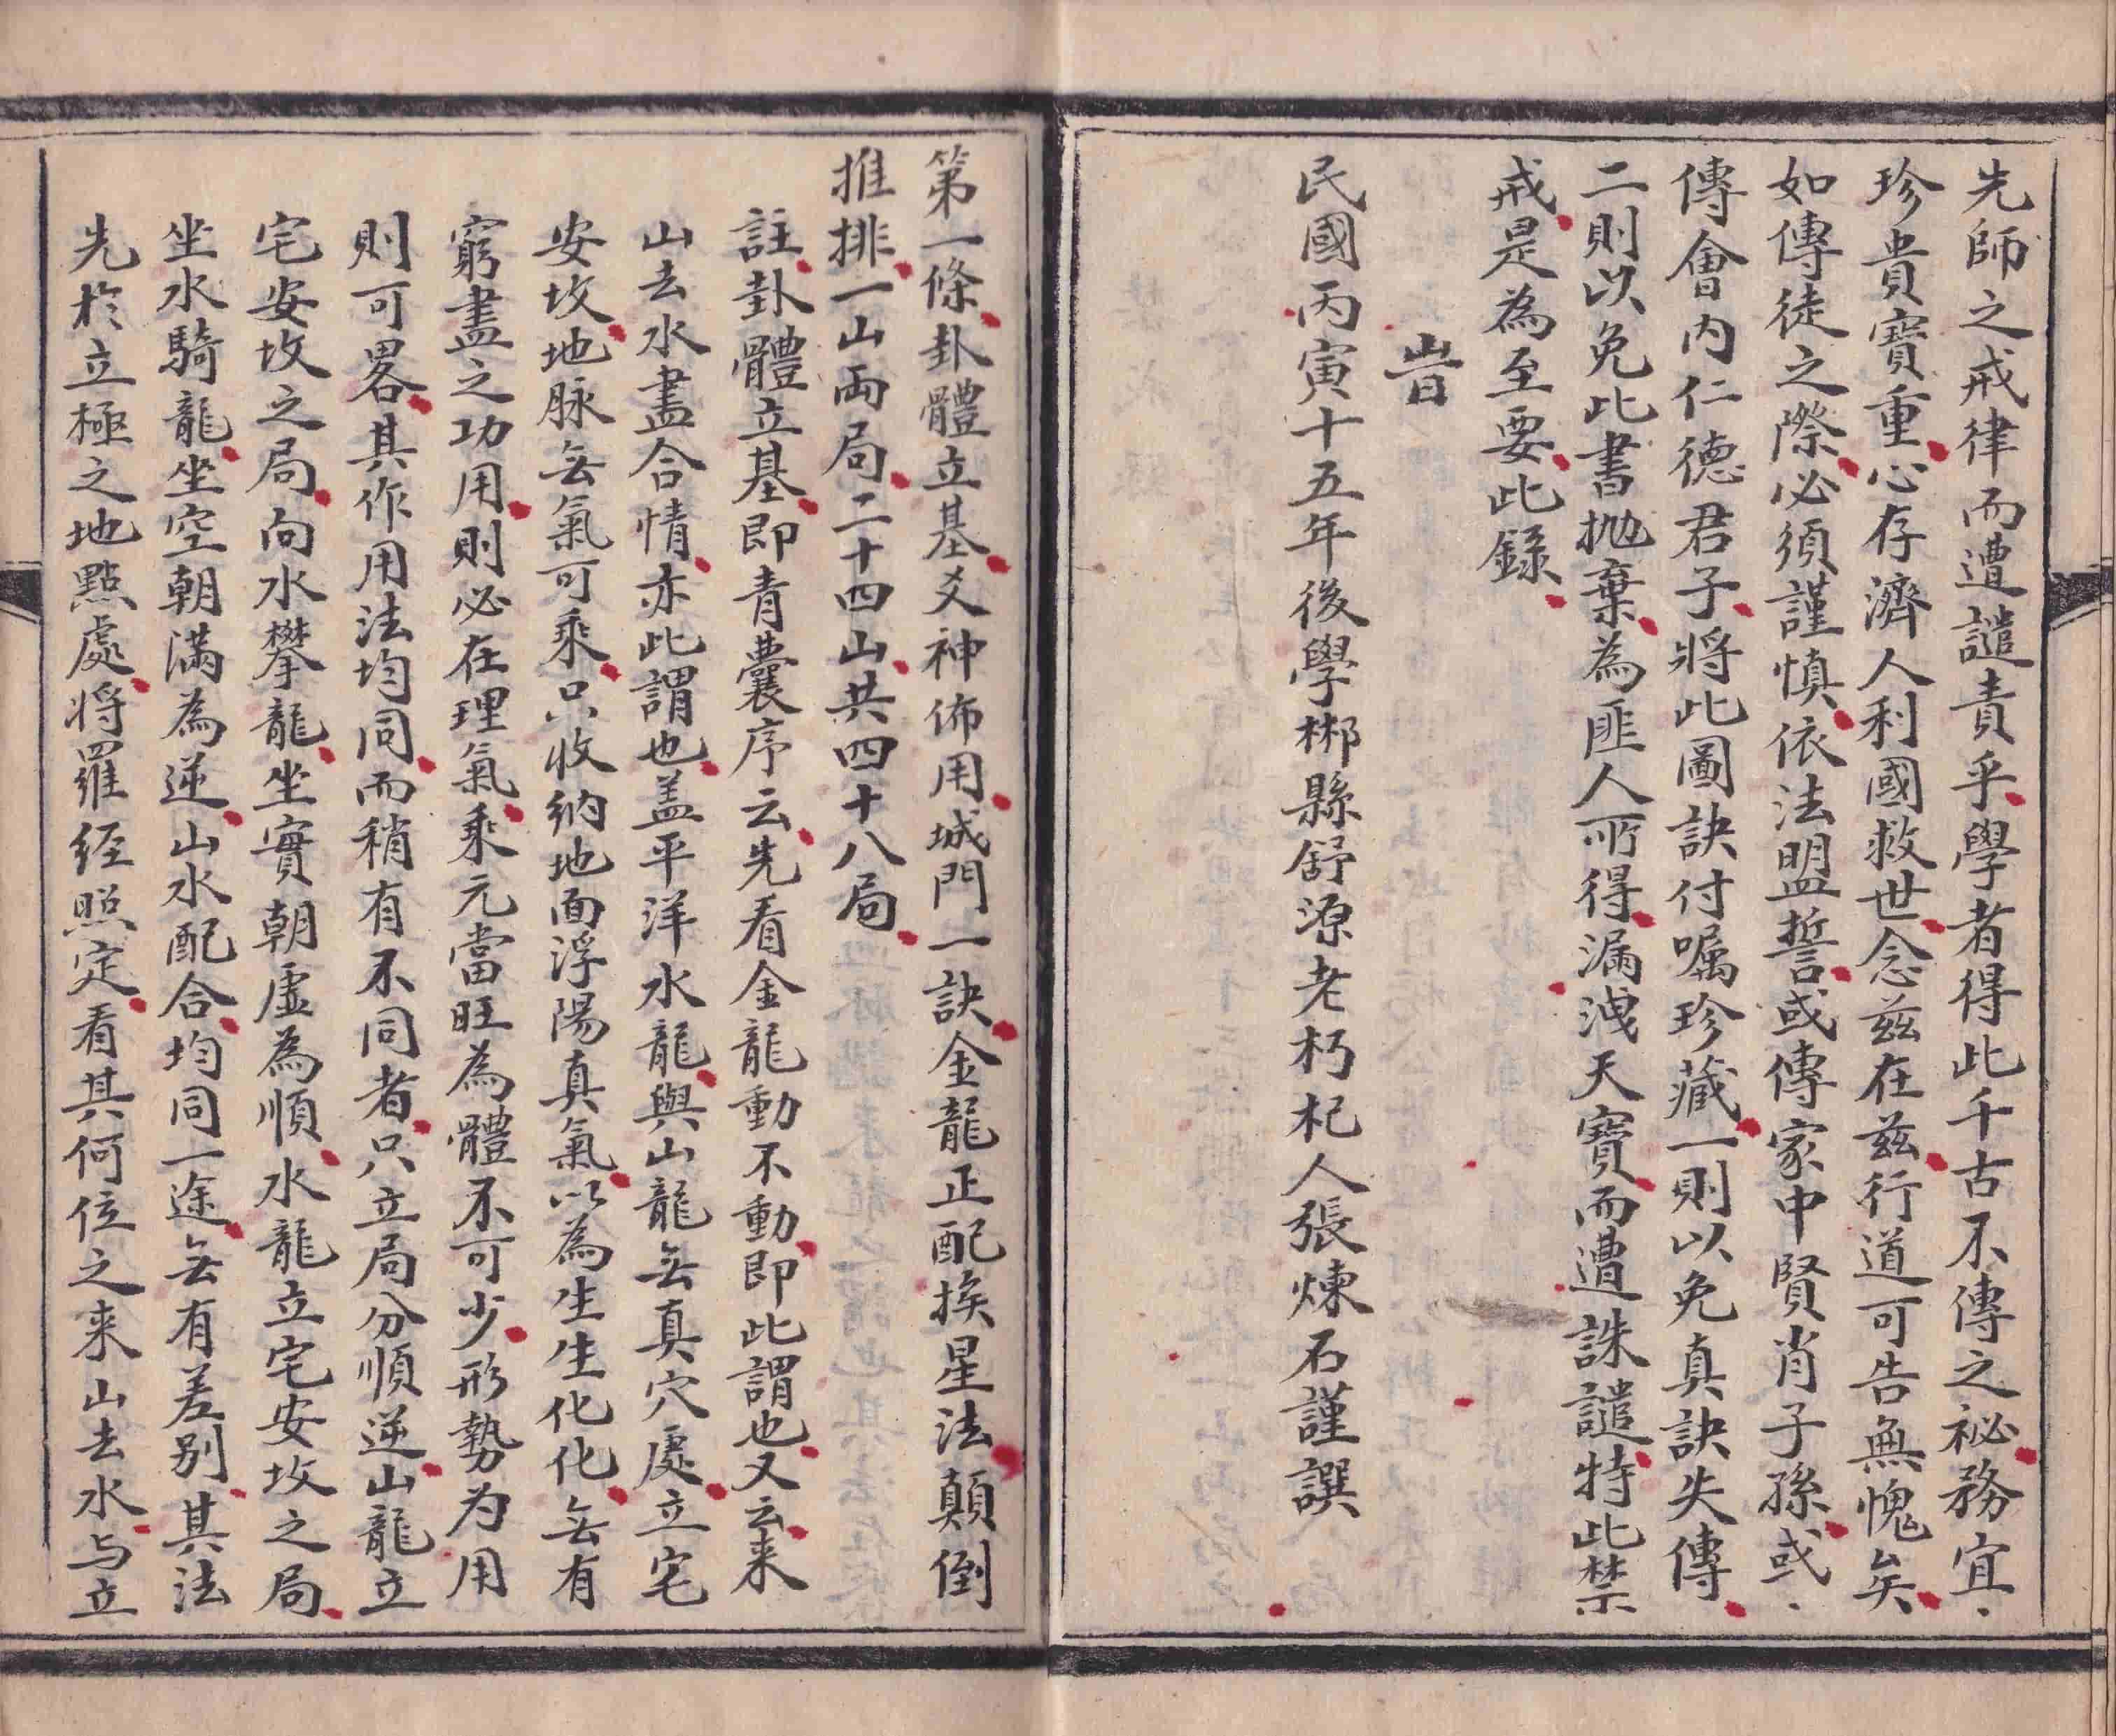 先師之戒律而遭譴責乎學者得此千古不傳之祕務宜
珍貴寶重心存濟人利國救世念兹在兹行道可告無愧矣
如傳徒之際必須謹慎依法明盟誓或傳家中賢肖子孫或
傳會内仁德君子將此圖訣付囑珍藏一則以免真訣失傳
二則以免此書抛棄為匪人所得漏洩天寶而遭誅譴特此禁
戒是為至要此錄
旹
民國丙寅十五年後學郴縣舒源老朽杞人張煉石謹譔
第一條卦體立基爻神佈用城門一訣金龍正配挨星法顛倒
推排一山両局二十四山共四十八局
註卦體立基即青囊序云先看金龍動不動即此謂也又云来
山去水盡合情亦此謂也盖平洋水龍與山龍无真穴處立宅
安坟地脉无氣可乘只收納地面浮陽真氣以為生生化化无有
窮盡之功用則必在理氣乘元當旺為體不可少形勢为用
則可畧其作用法均同而稍有不同者只立局分順逆山龍立
宅安坟之局向水攀龍坐實朝虛為順水龍立宅安坟之局
坐水騎龍坐空朝滿為逆山水配合均同一途无有差别其法
先於立極之地點處将羅経照定看其何位之来山去水与立